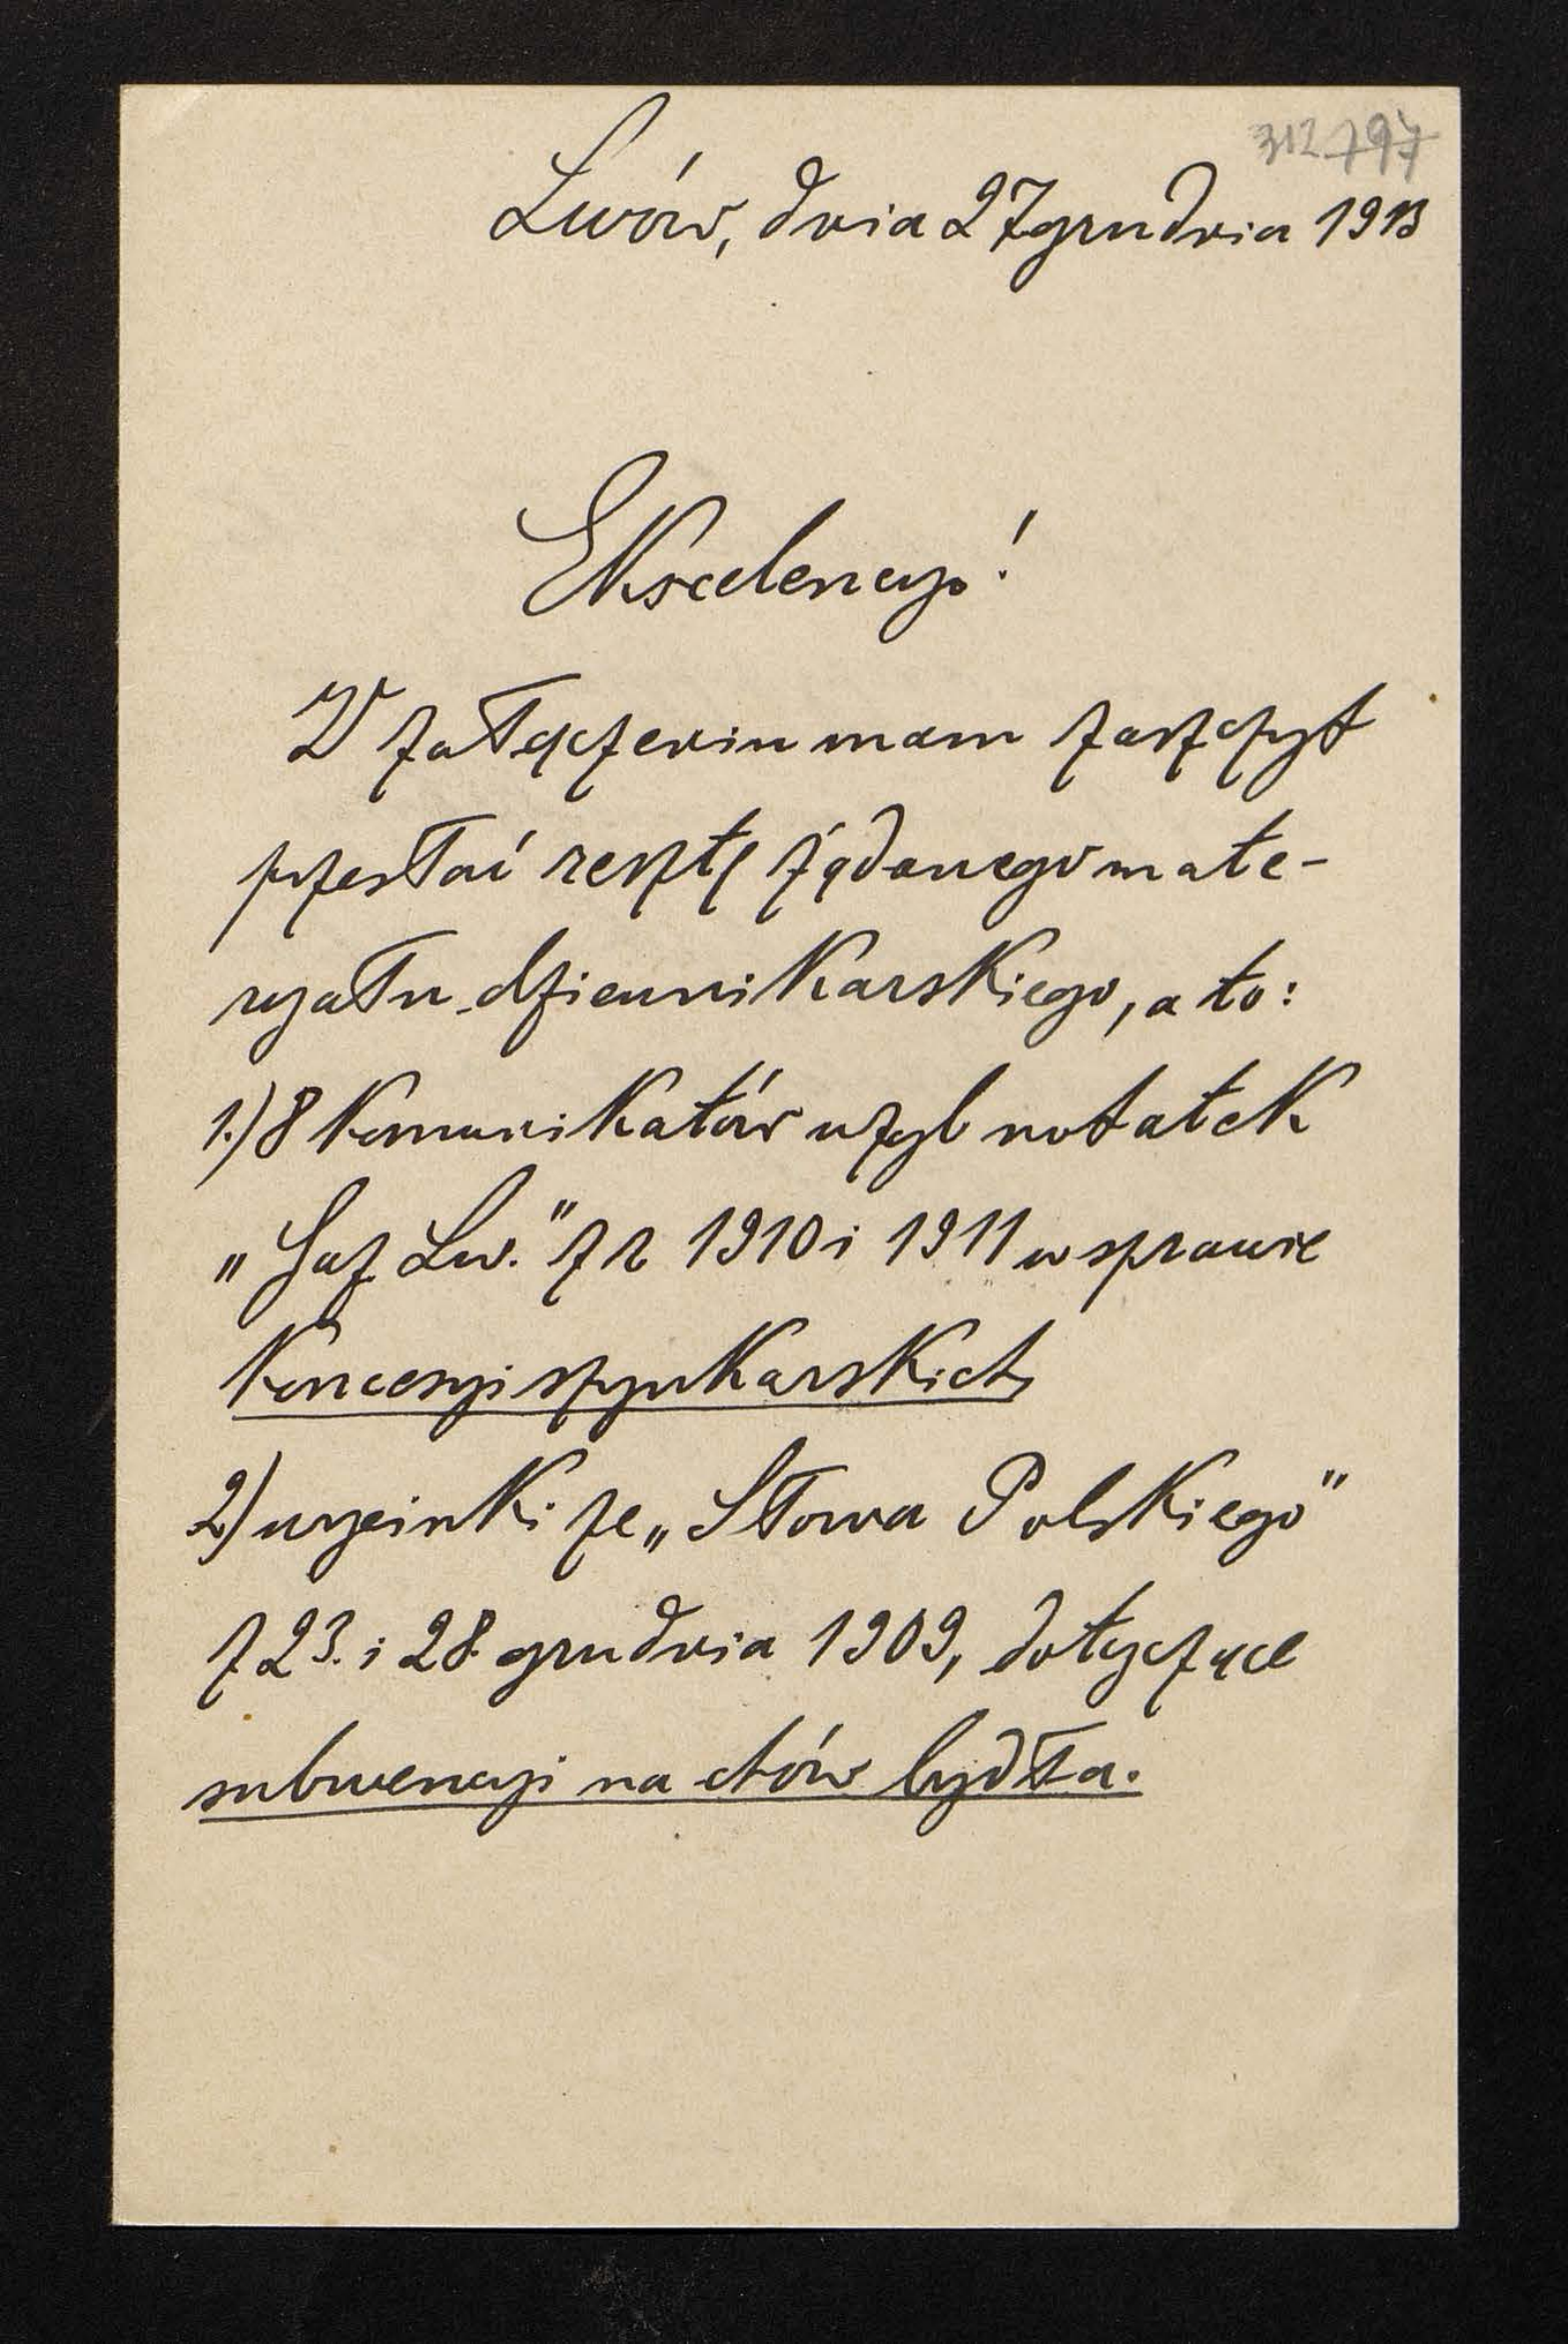 312 797
Lwów, dnia 27 grudnia 1913
Ekscelencyo!
W załączeniu mam zaszczyt
przesłać resztę żądanego mate-
ryału dziennikarskiego, a to:
1.) 8 komunikatów wzgl notatek
„Gaz Lw." z r 1910 i 1911 w sprawie
koncesyi szynkarskich
2) wycinki ze „Słowa Polskiego"
z 23. i 28. grudnia 1909, dotyczące
subwencyi na chów bydła.